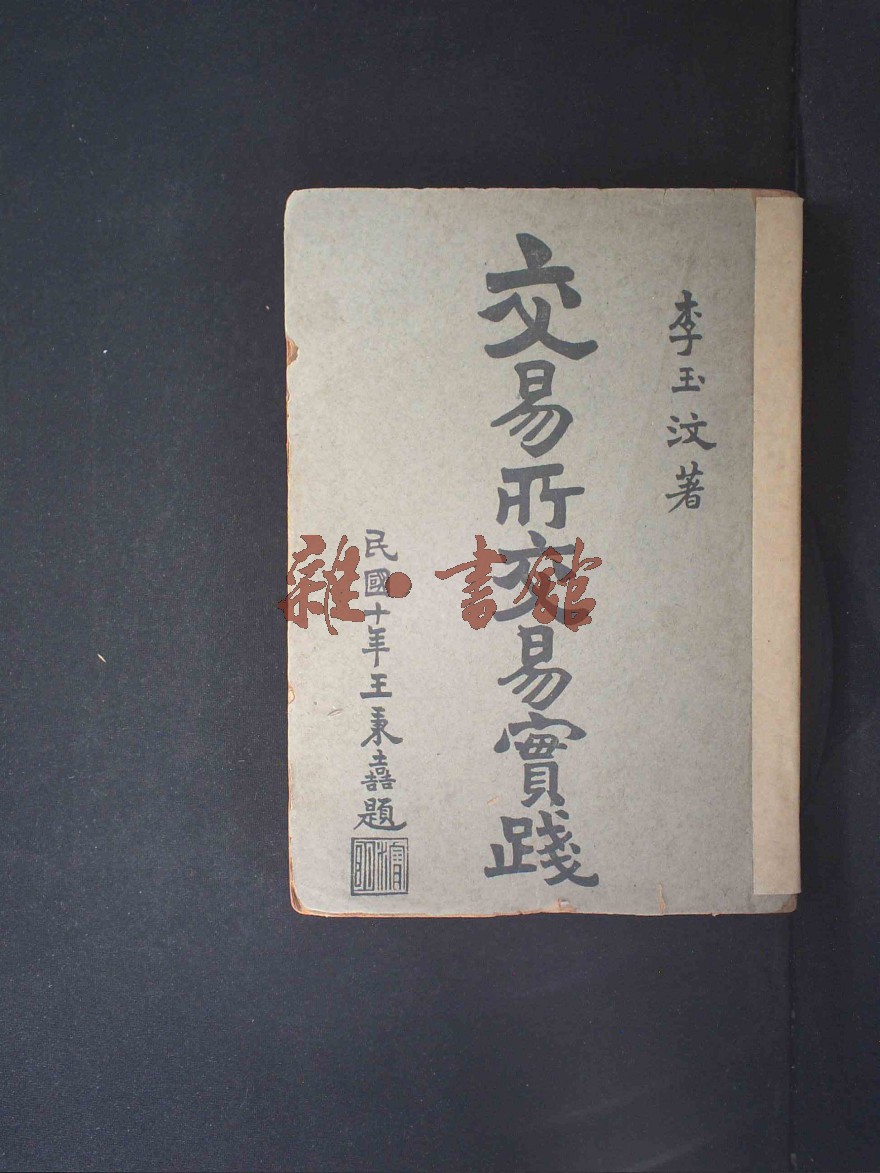 李玉汶著
交易所交易實踐
民國十年王秉嘉題
雜·書館